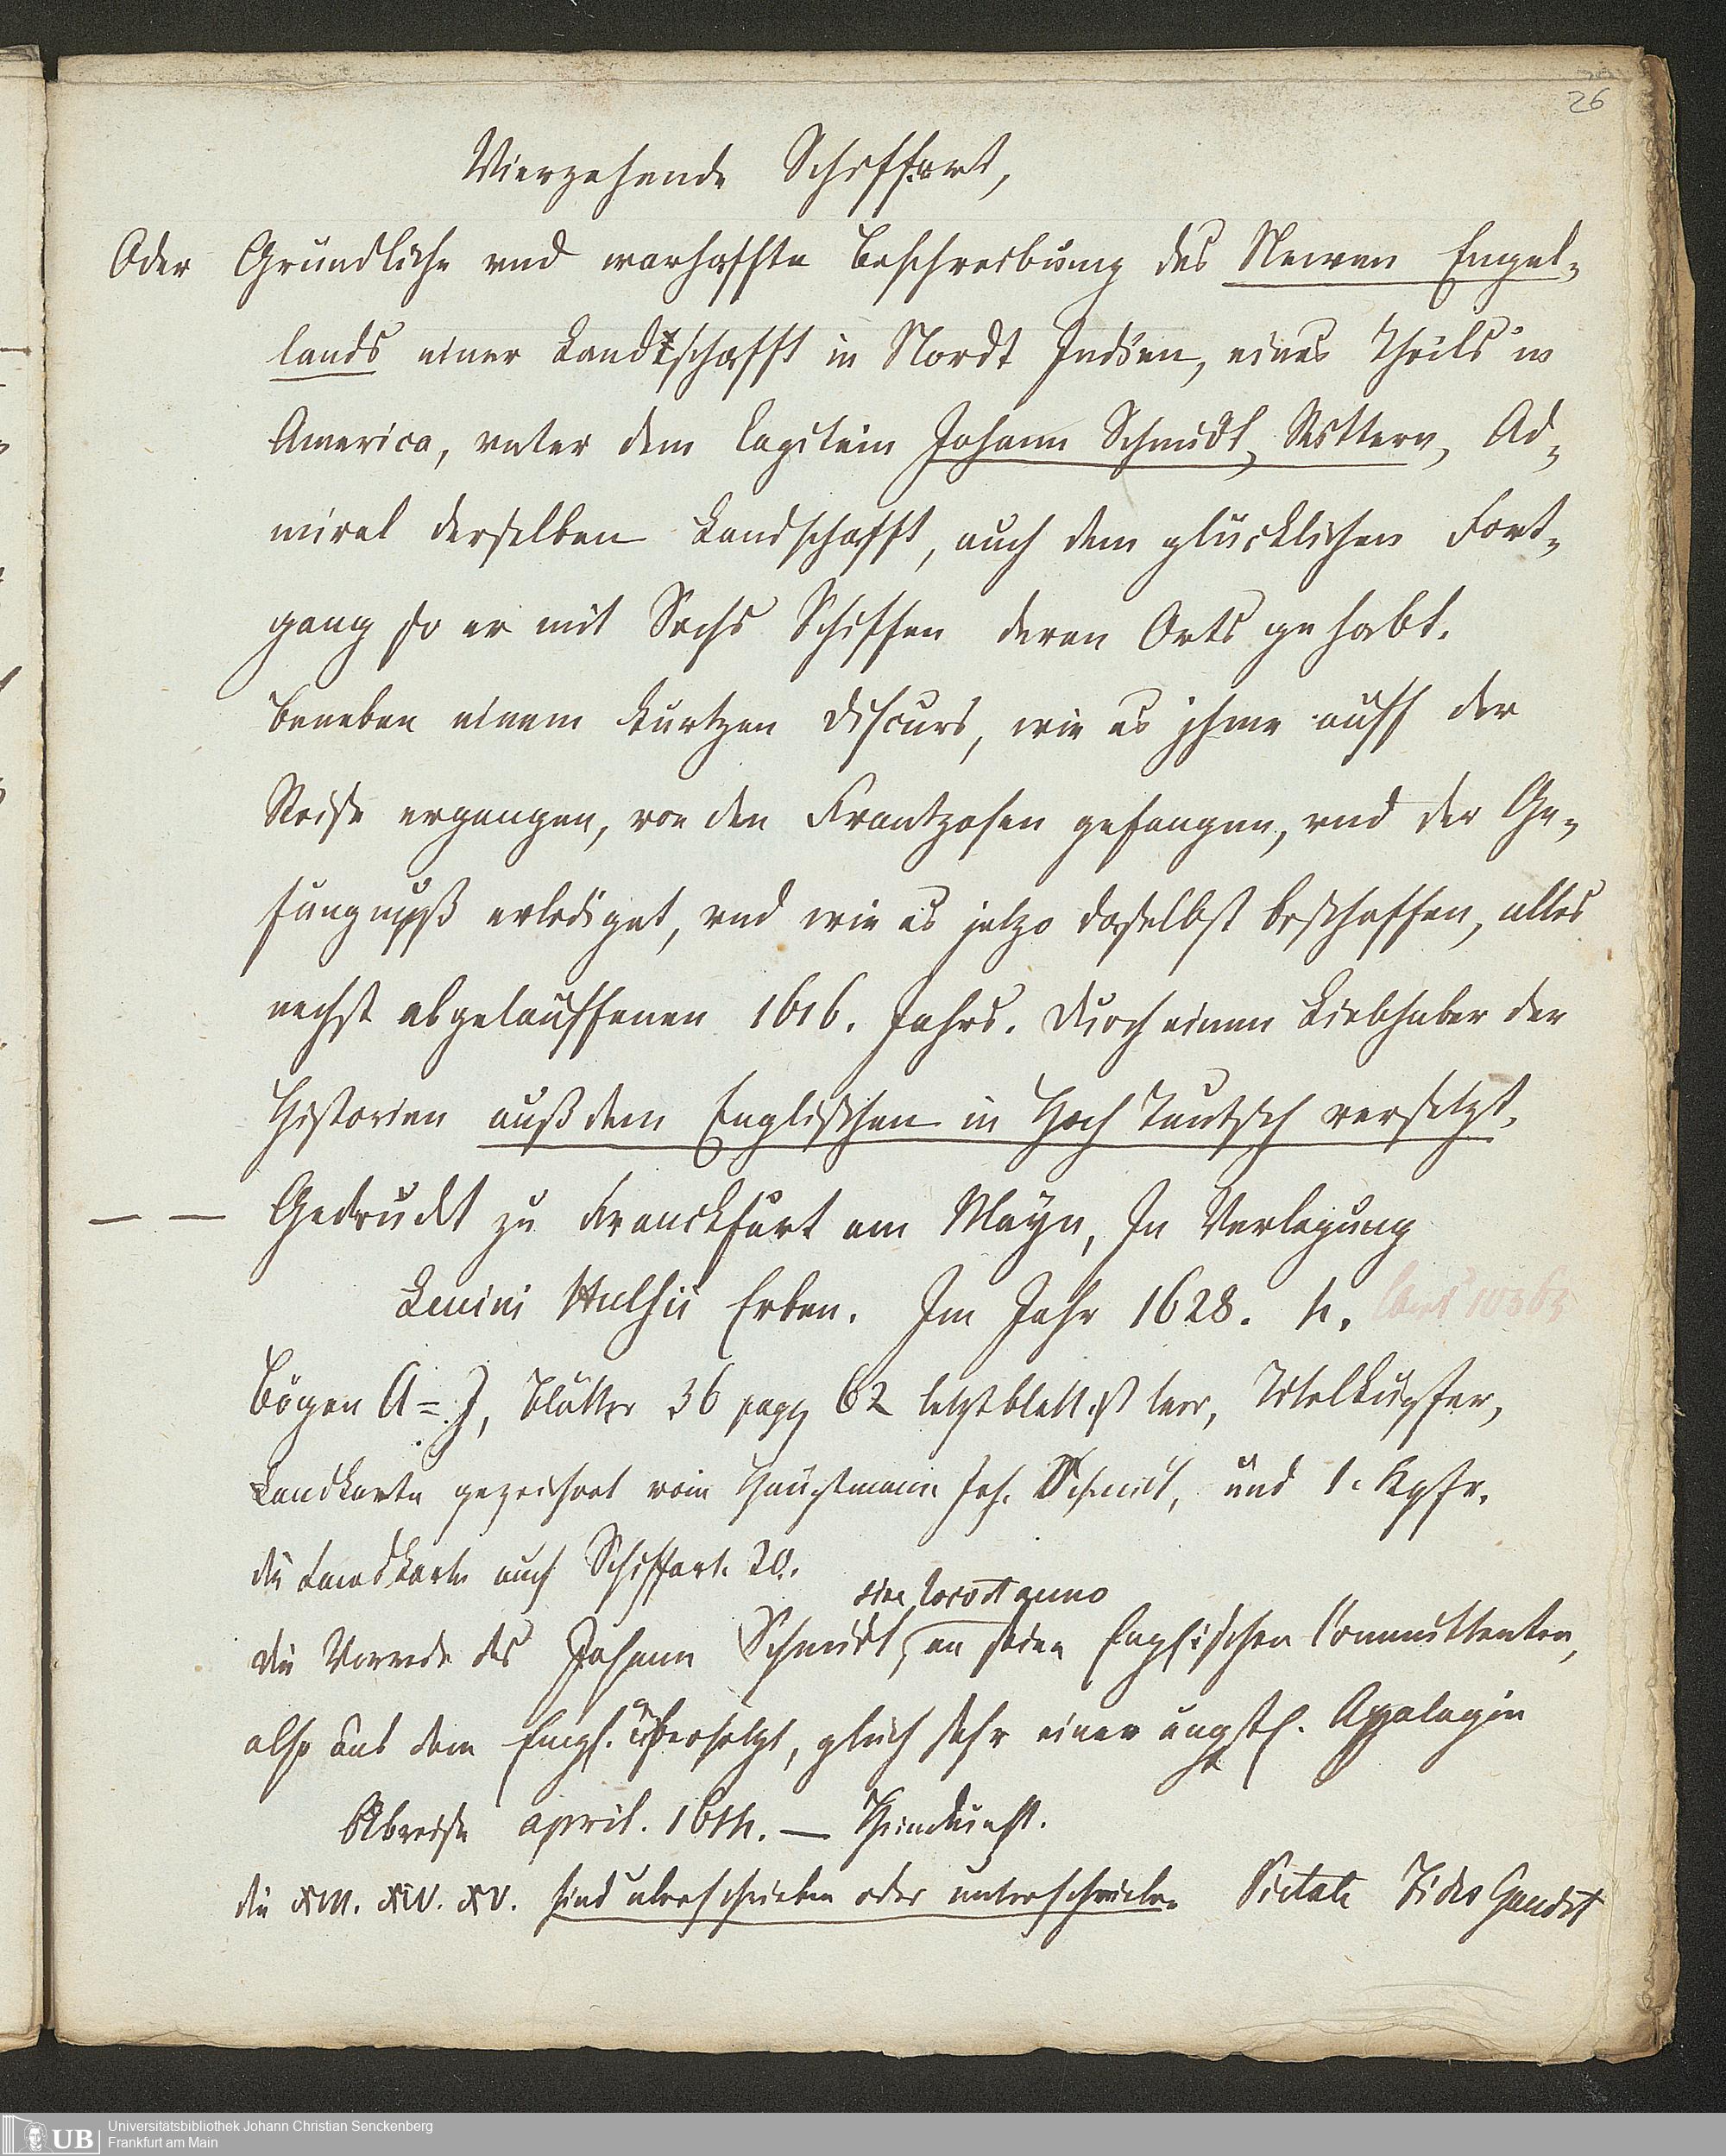 26
Vierzehende Schiffart,
Oder Gründliche vnd warhaffte Beschreibung des Newen Engel-
lands einer Landtschafft in Nordt Indien, eines Theils in
America, vnter dem Capitein Johann Schmidt, Rittern, Ad-
miral derselben Landschafft, auch dem glücklichen Fort-
gang so er mit Sechs Schiffen deren Orts gehabt.
Beneben einem kurtzen Discurs, wie es jhme auff der
Reise ergangen, von den Frantzosen gefangen, vnd der Ge-
fängnuß erlediget, vnd wie es jetzo daselbst beschaffen, alles
nechst abgelauffenen 1616. Jahrs. Durch einen Liebhaber der
Historien auß dem Englischen in Hoch Teutsch versetzt.
— — Gedruckt zu Franckfurt am Mayn, In Verlegung
Levini Hulsii Erben. Im Jahr 1628. 4.
Bögen A=J, Blätter 36 pagg 62 letzt blatt ist leer, Titelkupfer,
Landkarte gezeichnet vom Hauptmann Joh. Schmidt, und 1. Kpfr.
die Landkarte auch Schiffart. 20.
sine loco et anno
die Vorrede des Johann Schmidt, an seine Englischen Committenten,
also aus dem Engl. übersetzt, gleich sehr einer ängstl. Appologie
Abreise april. 1614. —
die XIII. XIV. XV. sind überschrieben oder unterschrieben Pietate Fides Gaudet
Universitätsbibliothek Johann Christian Senckenberg
Frankfurt am Main
UB